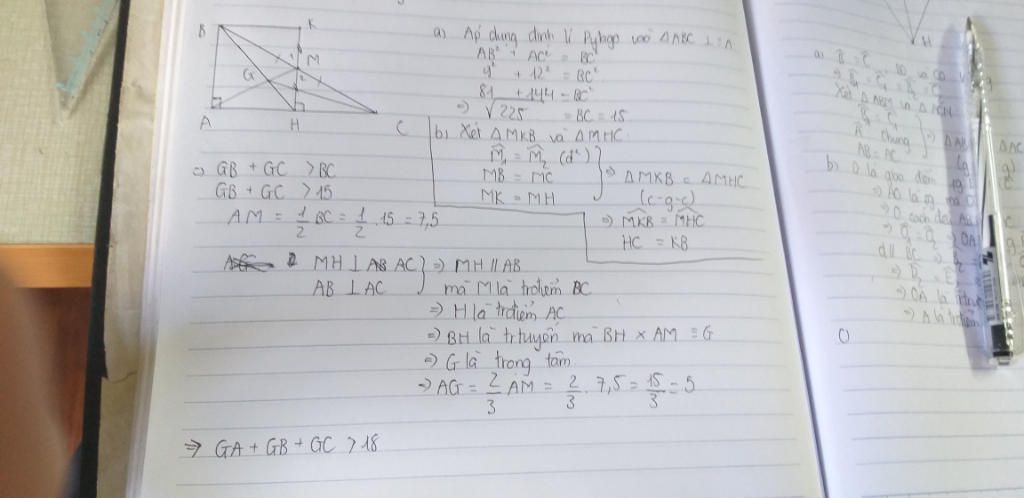 B K
M
G
1
2
A H C
a) Áp dụng định lí Pytago vào Δ ABC ⊥ = A
AB² + AC² = BC²
9² + 12² = BC²
81 + 144 = BC²
⇒ √225 = BC = 15
b) Xét Δ MKB và Δ MHC
M̂₁ = M̂₂ (đ²)
MB = MC
MK = MH
⇒ Δ MKB = Δ MHC
(c-g-c)
⇒ MKB = MHC
HC = KB
⇒ GB + GC > BC
GB + GC > 15
AM = 1/2 BC = 1/2 . 15 = 7,5
MH ⊥ AC
AB ⊥ AC
⇒ MH // AB
mà M là trđiểm BC
⇒ H là trđiểm AC
⇒ BH là tr tuyến mà BH × AM = G
⇒ G là trọng tâm
⇒ AG = 2/3 AM = 2/3 . 7,5 = 15/3 = 5
⇒ GA + GB + GC > 18
H
a) B̂ = Ĉ
AB = AC
b) O là giao điểm
d // BC
⇒ OA là
⇒ A là trđiểm